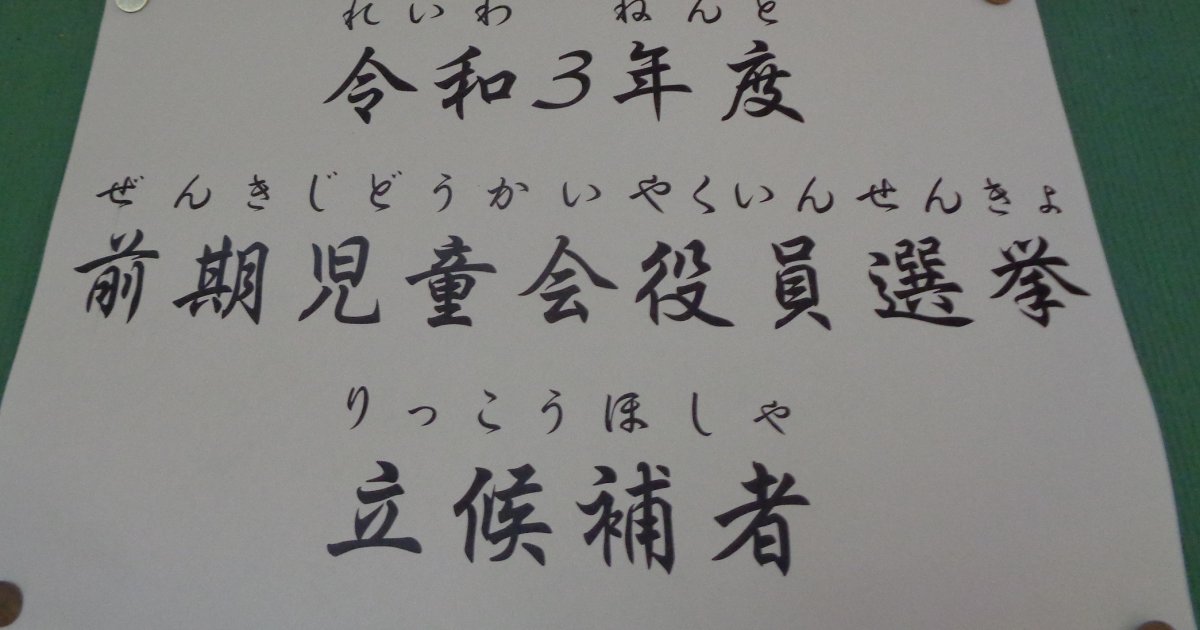 れいわ ねんど
令和3年度
ぜんきじどうかいやくいんせんきょ
前期児童会役員選挙
りっこうほしゃ
立候補者